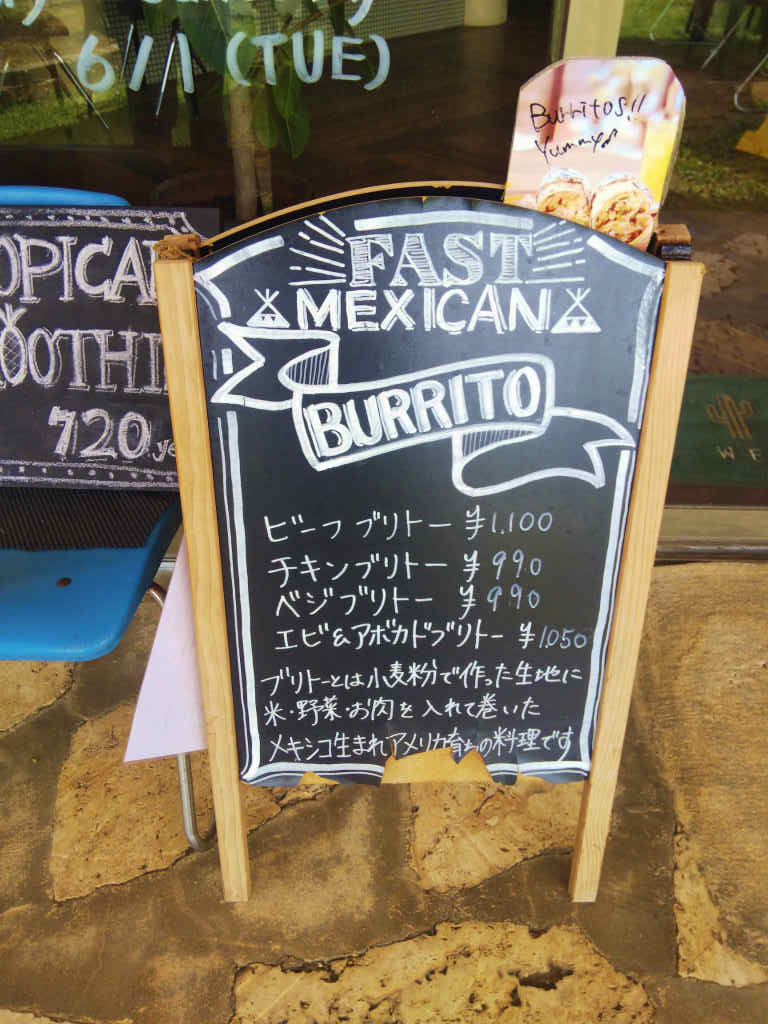 6/1 (TUE)
Burritos!!
Yummy
OPICAL
OOTHI
720.ye
FAST
MEXICAN
BURRITO
ビーフ ブリトー ¥1,100
チキンブリトー ¥990
ベジブリトー ¥990
エビ&アボカドブリトー ¥1050
ブリトーとは小麦粉で作った生地に
米・野菜・お肉を入れて巻いた
メキシコ生まれアメリカ育ちの料理です